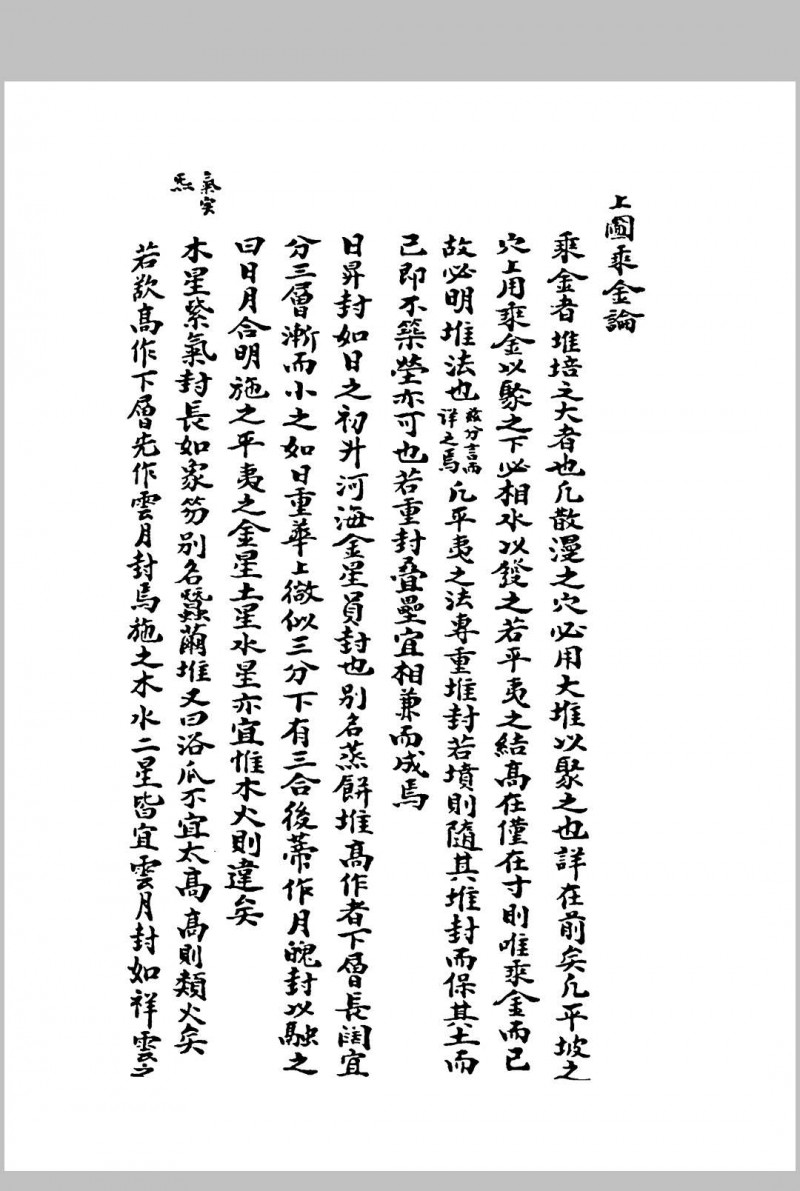 上圖乘金論
乘金者堆培之大者也凡散漫之穴必用大堆以聚之也詳在前矣凡平坡之
穴上用乘金以聚之下必相水以發之若平夷之結高在僅在寸則唯乘金而已
故必明堆法也茲分言而詳之焉凡平夷之法專重堆封若墳則隨其堆封而保其土而
已即不築塋亦可也若重封叠壘宜相兼而成焉
日昇封如日之初升河海金星員封也别名蒸餅堆高作者下層長闊宜
分三層漸而小之如日重華上微似三分下有三合後蒂作月魄封以融之
曰日月合明施之平夷之金星土星水星亦宜惟木火則違矣
木星紫氣封長如象笏别名蠶繭堆又曰浴瓜不宜太高高則類火矣
若欲高作下層先作雲月封焉施之木水二星皆宜雲月封如祥雲之
氣実
炁